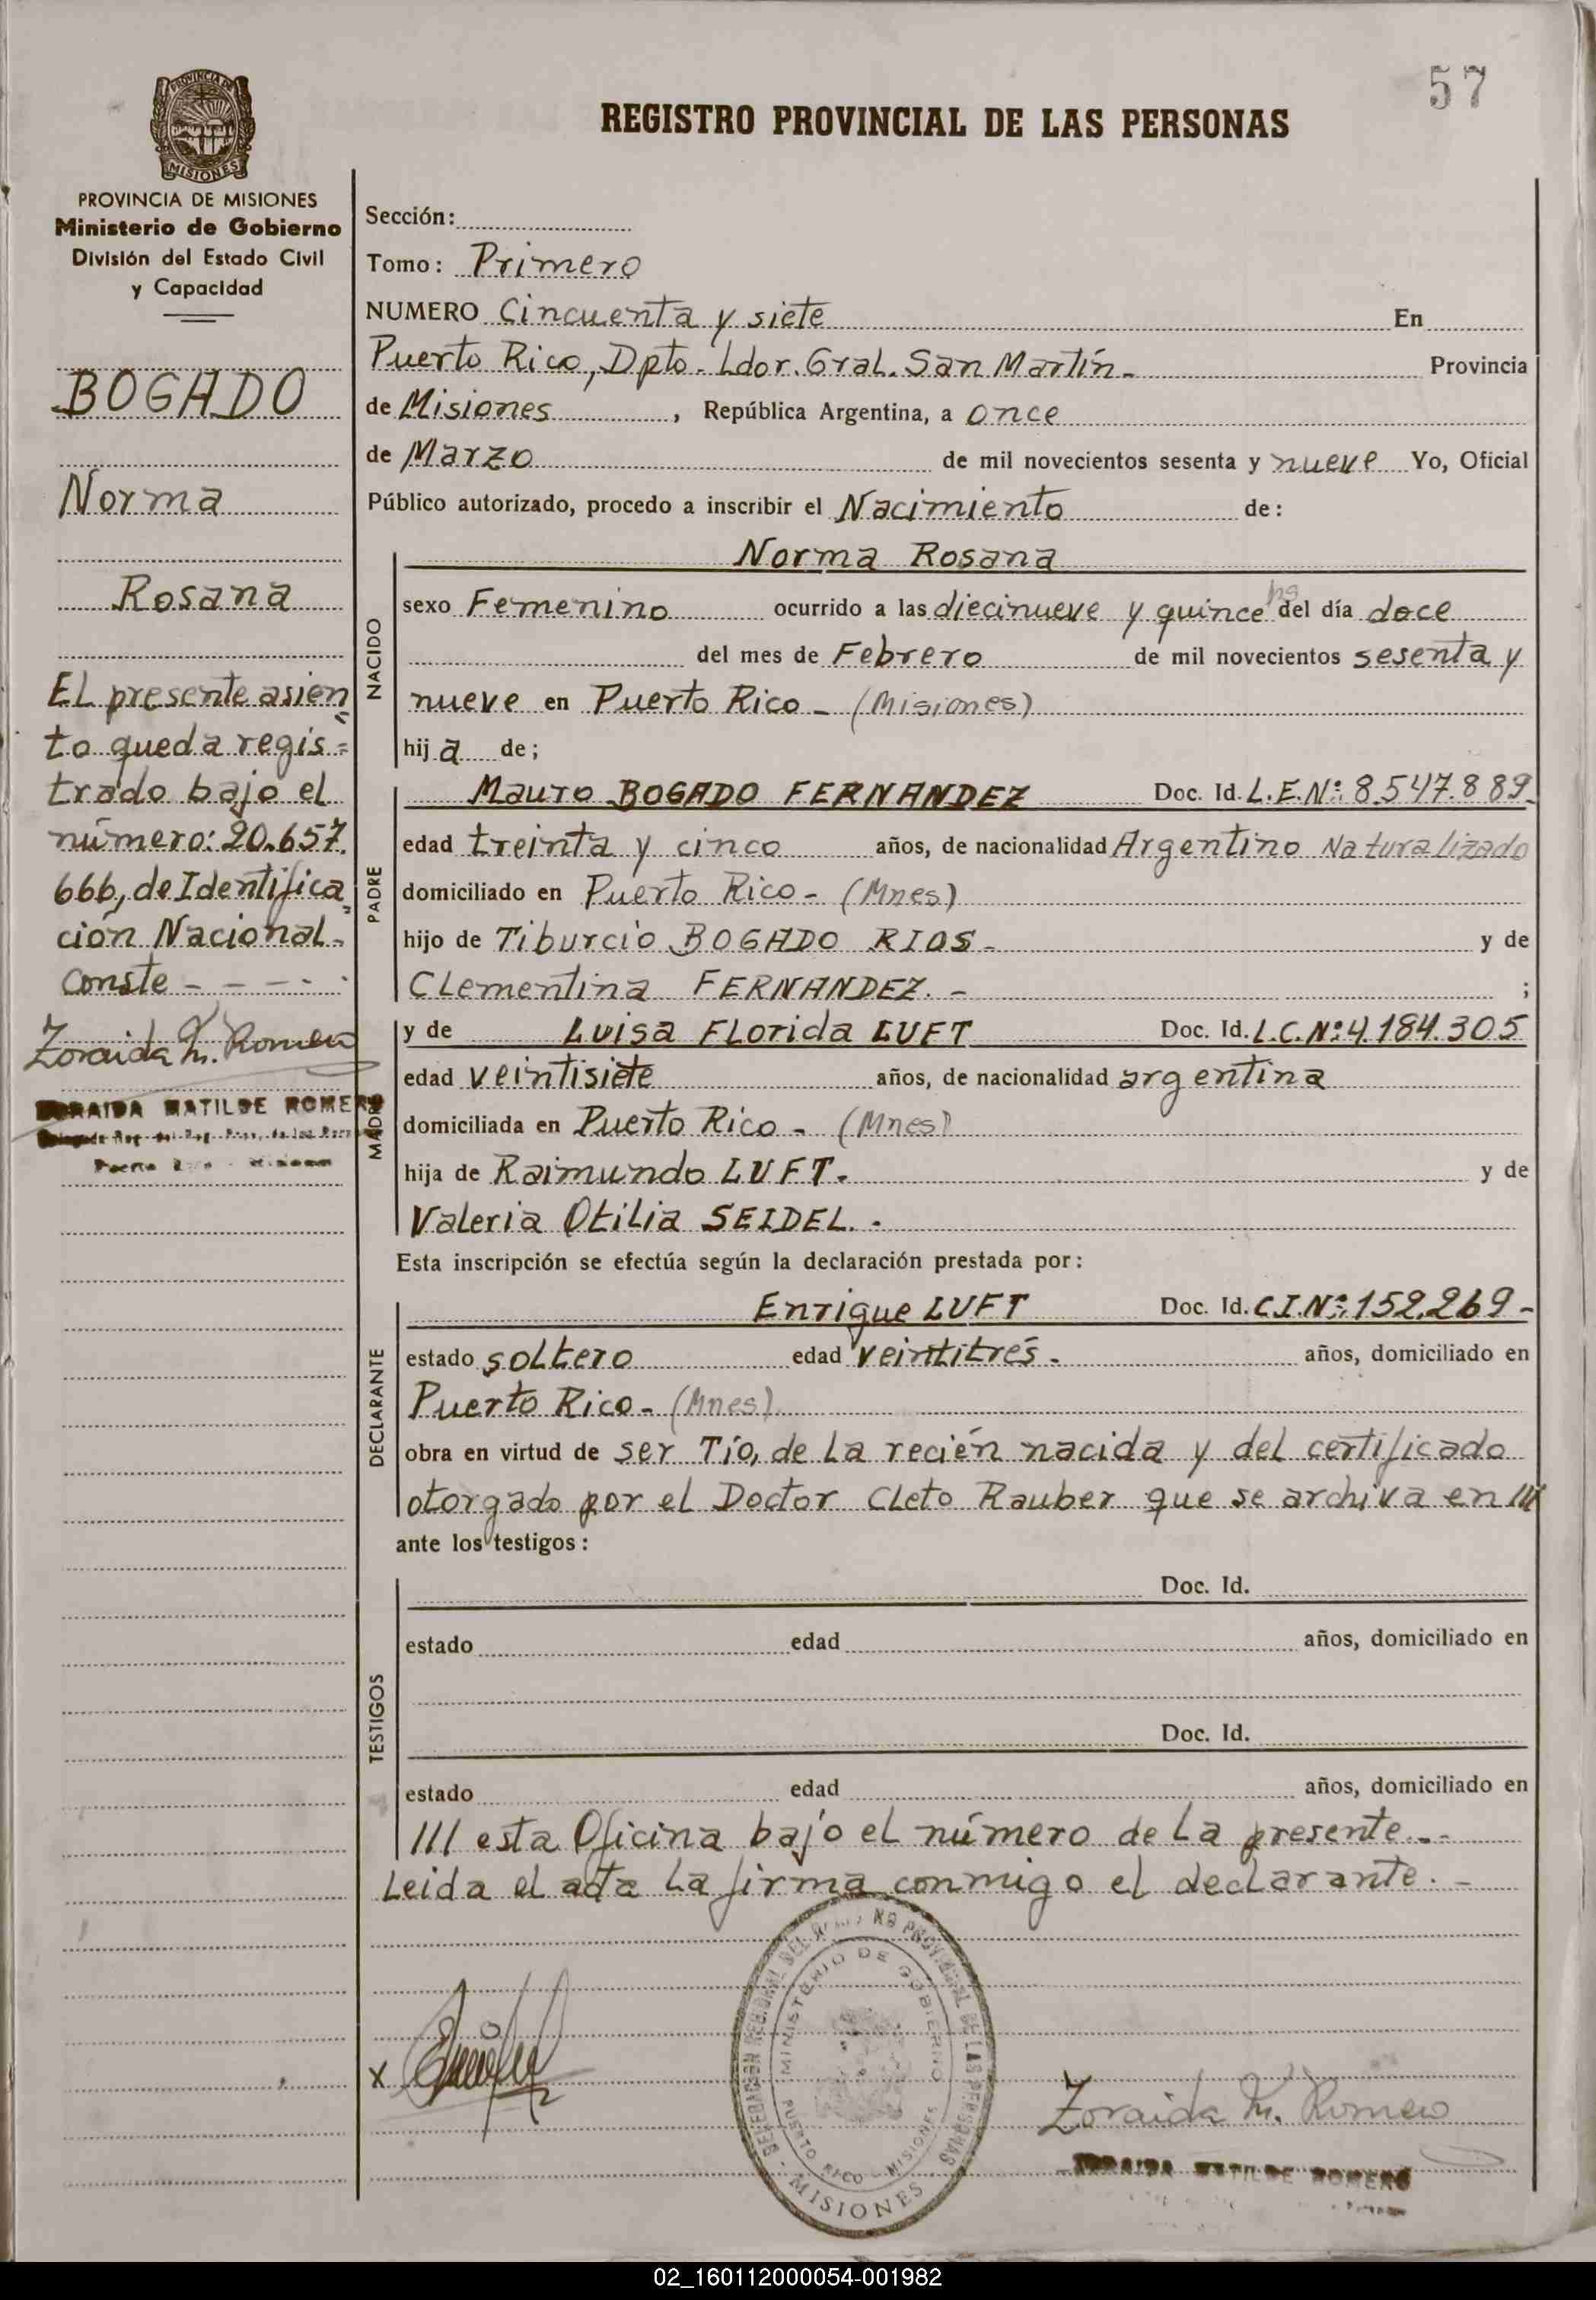 57
REGISTRO PROVINCIAL DE LAS PERSONAS
MISIONES
PROVINCIA DE MISIONES
Ministerio de Gobierno
División del Estado Civil
y Capacidad
BOGADO
Norma
Rosana
El presente asien
to queda regis=
trado bajo el
número: 20.657.
666, de Identifica
ción Nacional.
Conste - - - -
Zoraida M. Romero
ZORAIDA MATILDE ROMERO
Sección:
Tomo: Primero
NUMERO Cincuenta y siete En
Puerto Rico, Dpto. Ldor. Gral. San Martín - Provincia
de Misiones , República Argentina, a once
de Marzo de mil novecientos sesenta y nueve Yo, Oficial
Público autorizado, procedo a inscribir el Nacimiento de:
NACIDO
Norma Rosana
sexo Femenino ocurrido a las diecinueve y quince hs del día doce
del mes de Febrero de mil novecientos sesenta y
nueve en Puerto Rico - (Misiones)
hija de;
PADRE
Mauro BOGADO FERNANDEZ Doc. Id. L.E.Nº: 8.547.889-
edad treinta y cinco años, de nacionalidad Argentino Naturalizado
domiciliado en Puerto Rico - (Mnes)
hijo de Tiburcio BOGADO RIOS - y de
Clementina FERNANDEZ. - ;
MADRE
y de Luisa Florida LUFT Doc. Id. L.C.Nº: 4.184.305
edad veintisiete años, de nacionalidad argentina
domiciliada en Puerto Rico - (Mnes)
hija de Raimundo LUFT. y de
Valeria Otilia SEIDEL. -
Esta inscripción se efectúa según la declaración prestada por:
DECLARANTE
Enrique LUFT Doc. Id. C.I.Nº: 152.269-
estado soltero edad veintitrés - años, domiciliado en
Puerto Rico - (Mnes)
obra en virtud de ser Tío, de la recién nacida y del certificado
otorgado por el Doctor Cleto Rauber que se archiva en ///
ante los testigos:
TESTIGOS
Doc. Id.
estado edad años, domiciliado en
Doc. Id.
estado edad años, domiciliado en
/// esta Oficina bajo el número de la presente. -
Leida el acta la firma conmigo el declarante. -
DELEGACION REGIONAL DEL REGISTRO PROVINCIAL DE LAS PERSONAS
MINISTERIO DE GOBIERNO
PUERTO RICO - MISIONES
- MISIONES -
x
Zoraida M. Romero
ZORAIDA MATILDE ROMERO
02_160112000054-001982